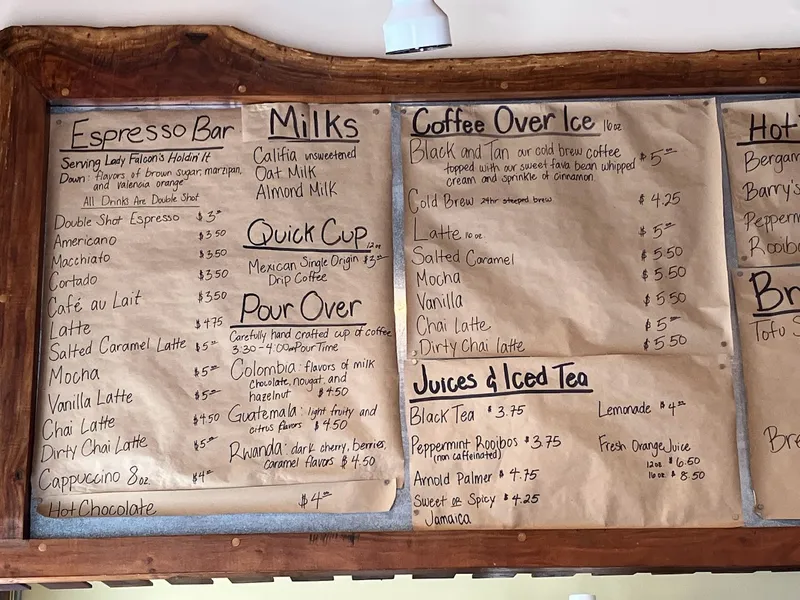 Espresso Bar
Serving Lady Falcon's Holdin' It
Down: flavors of brown sugar, marzipan,
and valencia orange
All Drinks Are Double Shot
Double Shot Espresso $3
Americano $3.50
Macchiato $3.50
Cortado $3.50
Café au Lait $3.50
Latte $4.75
Salted Caramel Latte $5
Mocha $5
Vanilla Latte $5
Chai Latte $4.50
Dirty Chai Latte $5
Cappuccino 8oz. $4
Hot Chocolate $4
Milks
Califia unsweetened
Oat Milk
Almond Milk
Quick Cup 12oz
Mexican Single Origin $3
Drip Coffee
Pour Over
Carefully hand crafted cup of coffee
3:30-4:00 Pour Time
Colombia: flavors of milk
chocolate, nougat, and
hazelnut $4.50
Guatemala: light fruity and
citrus flavors $4.50
Rwanda: dark cherry, berries,
caramel flavors $4.50
Coffee Over Ice 16oz
Black and Tan our cold brew coffee $5
topped with our sweet fava bean whipped
cream and sprinkle of cinnamon
Cold Brew 24hr steeped brew $4.25
Latte 16oz. $5
Salted Caramel $5.50
Mocha $5.50
Vanilla $5.50
Chai Latte $5
Dirty Chai latte $5.50
Juices & Iced Tea
Black Tea $3.75
Peppermint Rooibos $3.75
(non caffeinated)
Arnold Palmer $4.75
Sweet or Spicy $4.25
Jamaica
Lemonade $4
Fresh Orange Juice
12oz. $6.50
16oz. $8.50
Hot
Bergam
Barry's
Pepperm
Rooibo
Br
Tofu S
Bre